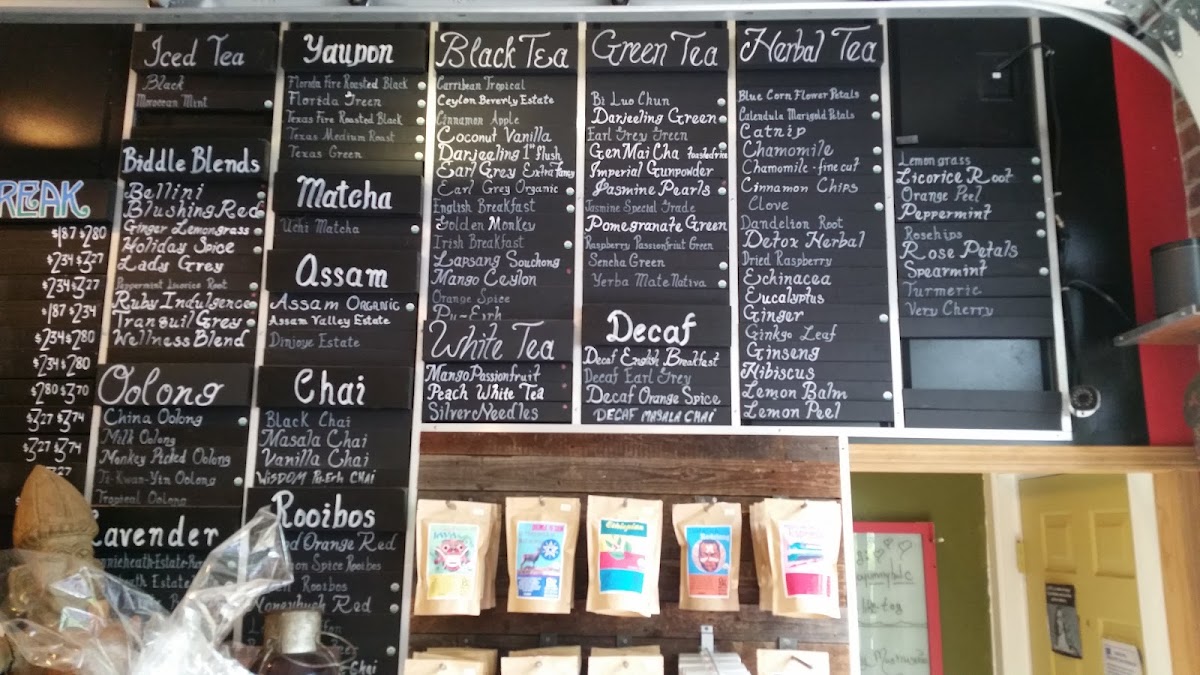 REAK
$1.87 $2.80
$2.34 $3.27
$2.34 $3.27
$1.87 $2.34
$2.34 $2.80
$2.34 $2.80
$2.80 $3.70
$3.27 $3.74
$3.27 $3.74
Iced Tea
Black
Moroccan Mint
Biddle Blends
Bellini
Blushing Red
Ginger Lemongrass
Holiday Spice
Lady Grey
Peppermint Licorice Root
Ruby Indulgence
Tranquil Grey
Wellness Blend
Oolong
China Oolong
Milk Oolong
Monkey Picked Oolong
Ti-Kwan-Yin Oolong
Tropical Oolong
Lavender
Yaupon
Florida Fire Roasted Black
Florida Green
Texas Fire Roasted Black
Texas Medium Roast
Texas Green
Matcha
Uchi Matcha
Assam
Assam Organic
Assam Valley Estate
Dinjoye Estate
Chai
Black Chai
Masala Chai
Vanilla Chai
Wisdom Pu-Erh Chai
Rooibos
Orange Red
Spice Rooibos
Rooibos
Honeybush Red
Chai
Black Tea
Carribean Tropical
Ceylon Beverly Estate
Cinnamon Apple
Coconut Vanilla
Darjeeling 1st flush
Earl Grey Extra Fancy
Earl Grey Organic
English Breakfast
Golden Monkey
Irish Breakfast
Lapsang Souchong
Mango Ceylon
Orange Spice
Pu-Erh
White Tea
Mango Passionfruit
Peach White Tea
Silver Needles
Green Tea
Bi Luo Chun
Darjeeling Green
Earl Grey Green
Gen Mai Cha toasted rice
Imperial Gunpowder
Jasmine Pearls
Jasmine Special Grade
Pomegranate Green
Raspberry Passionfruit Green
Sencha Green
Yerba Mate Nativa
Decaf
Decaf English Breakfast
Decaf Earl Grey
Decaf Orange Spice
Decaf Masala Chai
Herbal Tea
Blue Corn Flower Petals
Calendula Marigold Petals
Catnip
Chamomile
Chamomile - fine cut
Cinnamon Chips
Clove
Dandelion Root
Detox Herbal
Dried Raspberry
Echinacea
Eucalyptus
Ginger
Ginkgo Leaf
Ginseng
Hibiscus
Lemon Balm
Lemon Peel
Lemongrass
Licorice Root
Orange Peel
Peppermint
Rosehips
Rose Petals
Spearmint
Turmeric
Very Cherry